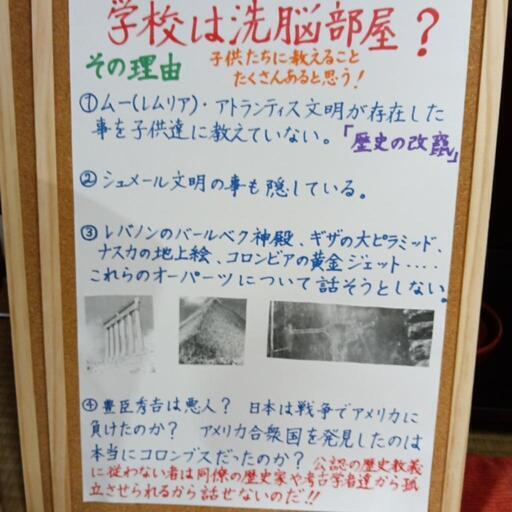 学校は洗脳部屋？
その理由
子供たちに教えること
たくさんあると思う！
①ムー(レムリア)・アトランティス文明が存在した
事を子供達に教えていない。「歴史の改竄」
②シュメール文明の事も隠している。
③レバノンのバールベク神殿、ギザの大ピラミッド、
ナスカの地上絵、コロンビアの黄金ジェット‥‥
これらのオーパーツについて話そうとしない。
④豊臣秀吉は悪人？ 日本は戦争でアメリカに
負けたのか？ アメリカ合衆国を発見したのは
本当にコロンブスだったのか？ 公認の歴史教義
に従わない者は同僚の歴史家や考古学者達から孤
立させられるから話せないのだ!!